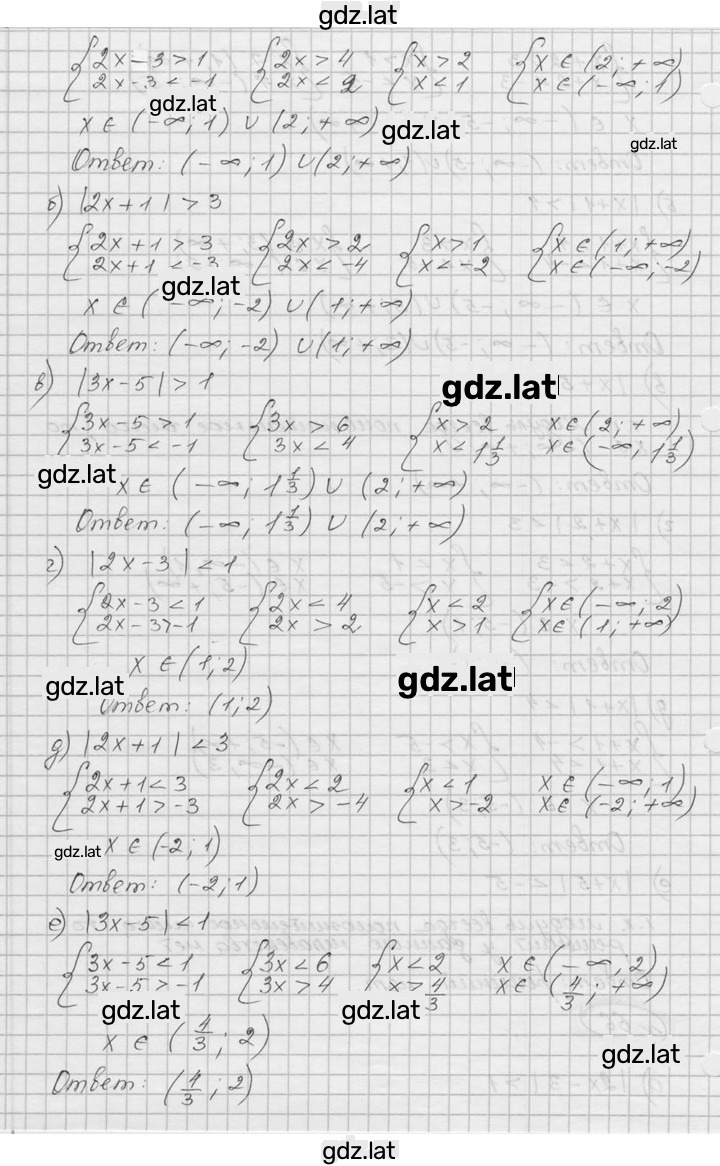 gdz.lat
{2x-3>1 {2x>4 {x>2 {x∈(2;+∞)
{2x-3<-1 {2x<2 {x<1 {x∈(-∞;1)
gdz.lat
x∈(-∞;1)∪(2;+∞)
gdz.lat
gdz.lat
Ответ: (-∞;1)∪(2;+∞)
б) |2x+1|>3
{2x+1>3 {2x>2 {x>1 {x∈(1;+∞)
{2x+1<-3 {2x<-4 {x<-2 {x∈(-∞;-2)
gdz.lat
x∈(-∞;-2)∪(1;+∞)
Ответ: (-∞;-2)∪(1;+∞)
в) |3x-5|>1
gdz.lat
{3x-5>1 {3x>6 {x>2 x∈(2;+∞)
{3x-5<-1 {3x<4 {x<1 1/3 x∈(-∞;1 1/3)
gdz.lat
x∈(-∞;1 1/3)∪(2;+∞)
Ответ: (-∞;1 1/3)∪(2;+∞)
г) |2x-3|<1
{2x-3<1 {2x<4 {x<2 {x∈(-∞;2)
{2x-3>-1 {2x>2 {x>1 {x∈(1;+∞)
x∈(1;2)
gdz.lat
gdz.lat
Ответ: (1;2)
д) |2x+1|<3
{2x+1<3 {2x<2 {x<1 x∈(-∞;1)
{2x+1>-3 {2x>-4 {x>-2 x∈(-2;+∞)
gdz.lat
x∈(-2;1)
Ответ: (-2;1)
е) |3x-5|<1
{3x-5<1 {3x<6 {x<2 x∈(-∞,2)
{3x-5>-1 {3x>4 {x>4/3 x∈(4/3;+∞)
gdz.lat
gdz.lat
x∈(4/3;2)
gdz.lat
Ответ: (4/3;2)
gdz.lat